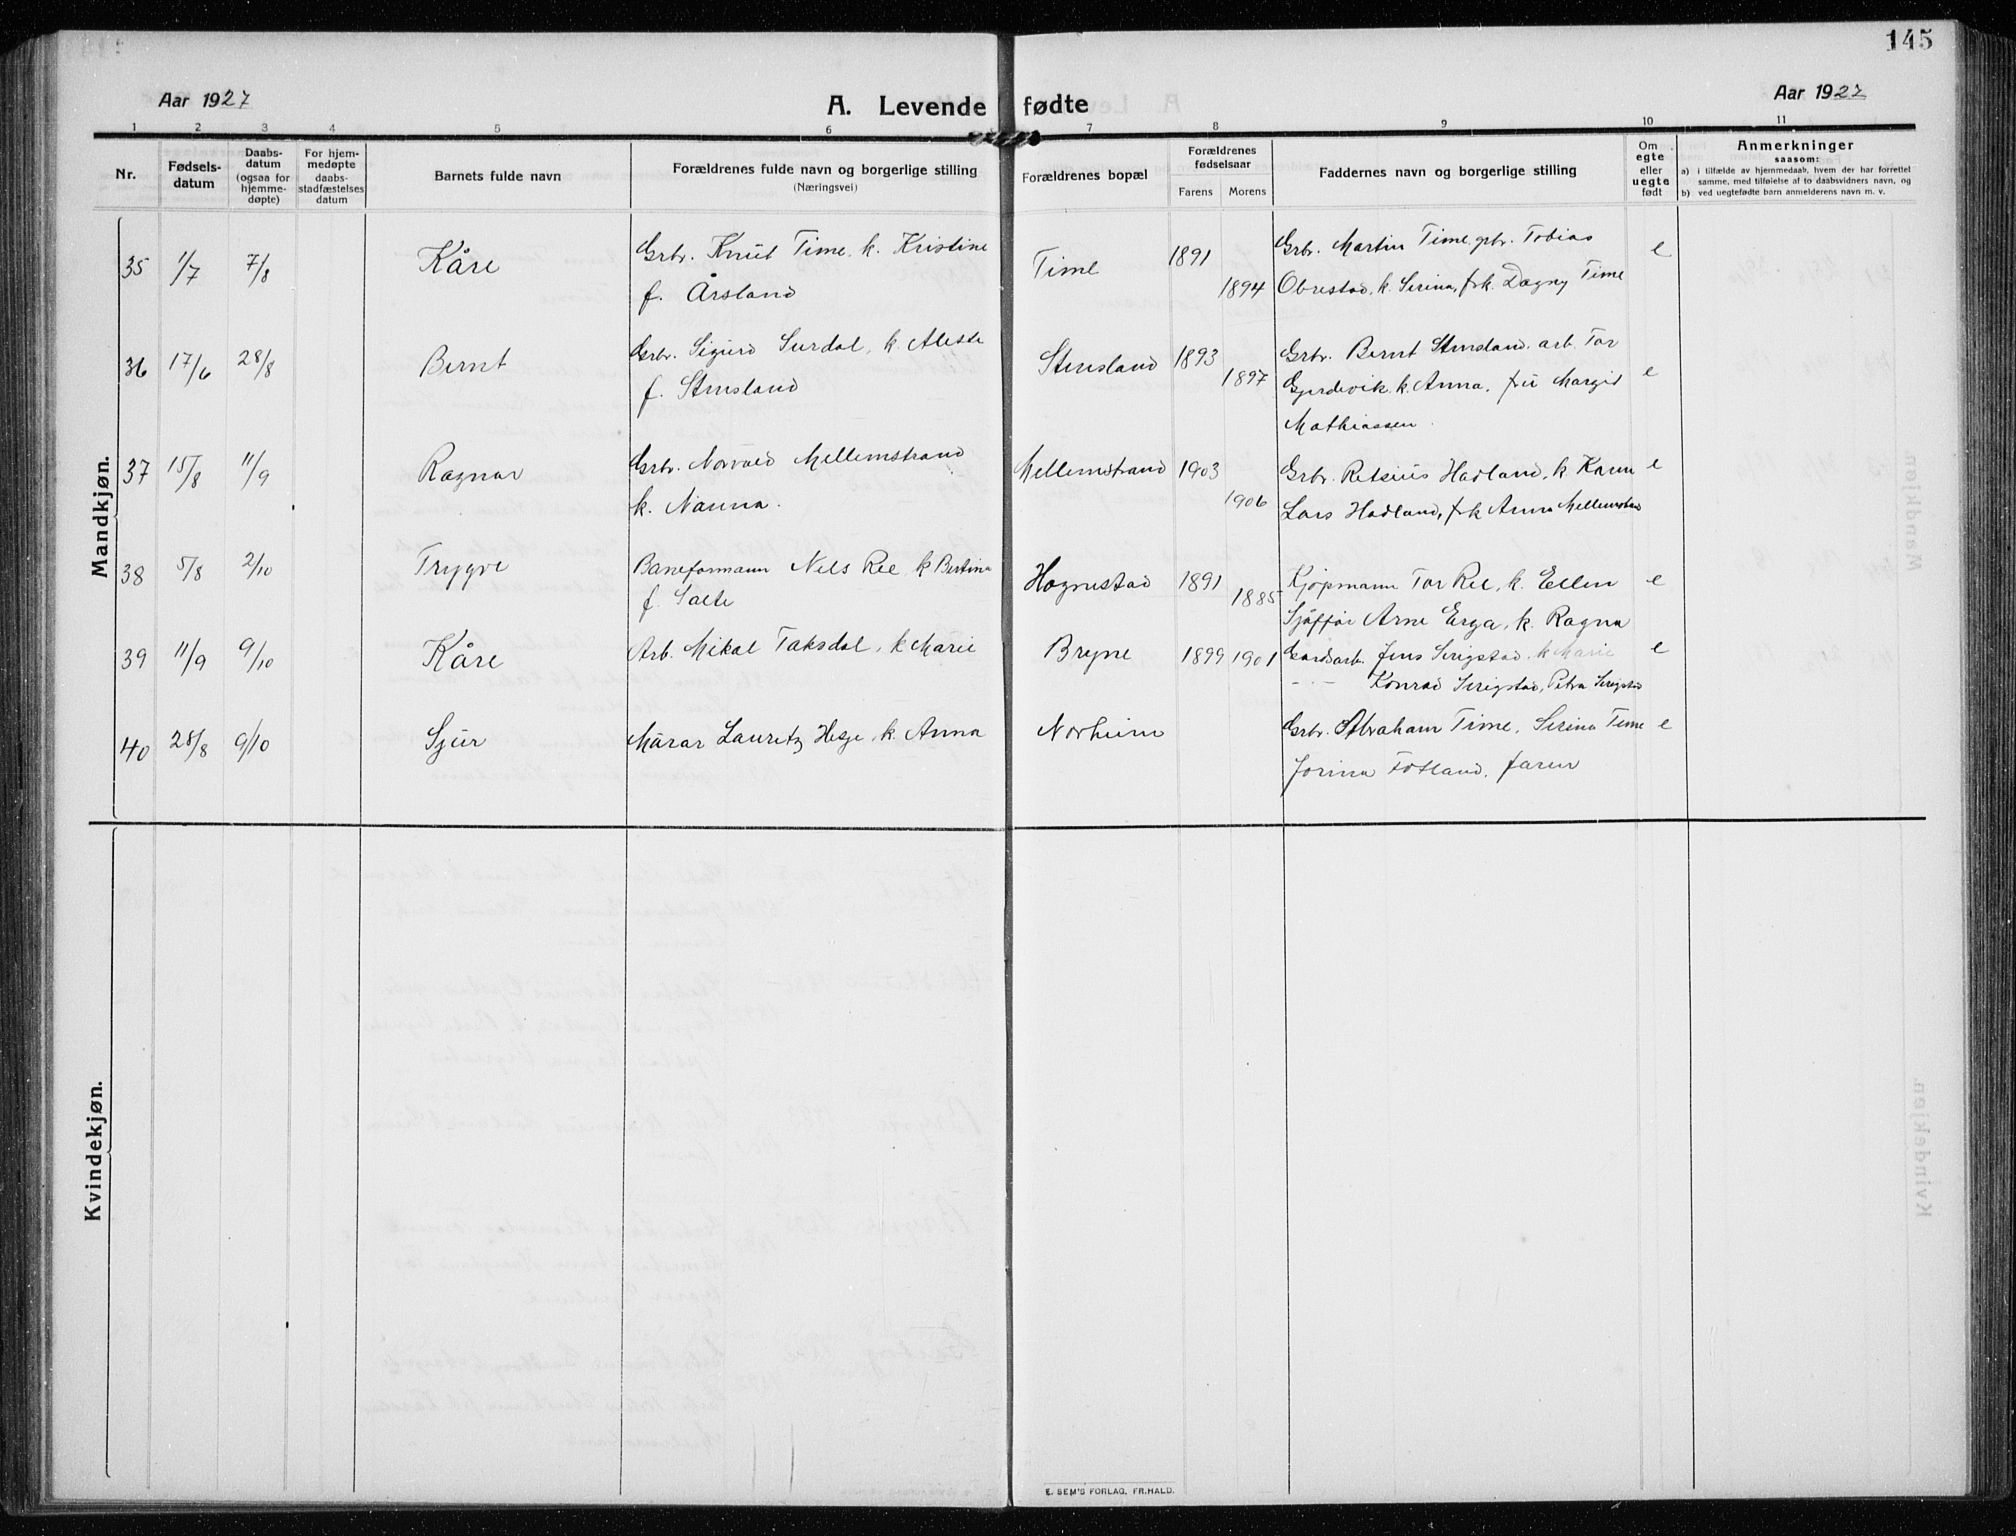 145
Aar 1927
A. Levende fødte
Aar 1927
1 2 3 4 5 6 7 8 9 10 11
Nr.
Fødsels-
datum
Daabs-
datum
(ogsaa for
hjemme-
døpte)
For hjem-
medøpte
daabs-
stadfæstelses
datum
Barnets fulde navn
Forældrenes fulde navn og borgerlige stilling
(Næringsvei)
Forældrenes bopæl
Forældrenes
fødselsaar
Farens Morens
Faddernes navn og borgerlige stilling
Om
egte
eller
uegte
født
Anmerkninger
saasom:
a) i tilfælde av hjemmedaab, hvem der har forrettet
samme, med tilføielse af to daabsvidners navn, og
b) ved uegtefødte barn anmelderens navn m. v.
Mandkjøn.
35 1/7 7/8 Kåre Grbr. Knut Time, k. Kristine Time 1891 Grbr. Martin Time, gbr. Tobias e
f. Årsland 1894 Obrestad, k. Serina, frk. Dagny Time
36 17/6 28/8 Bernt Grbr. Sigurd Surdal, k. Aleste Stensland 1893 Grbr. Bernt Stensland. arb. Tor
f. Stensland 1897 Gjerdevik k. Anna, fru Margit e
Mathiassen.
37 15/8 11/9 Ragnar Grbr. Norvald Mellemstrand Mellemstrand 1903 Grbr. Retsius Hadland, k Karen e
k. Nanna. 1906 Lars Hadland, frk Anna Mellemstrand
38 5/8 2/10 Trygve Baneformann Nels Ree, k Bertina Hognestad 1891 Kjøpmann Tor Ree, k. Ellen e
f. Salte 1885 Sjåffør Arne Erga, k. Ragna
39 11/9 9/10 Kåre Arb. Mikal Taksdal, k Marie Bryne 1899 1901 Gardsarb. Jens Serigstad, k Marie e
- - - Konrad Serigstad, Petra Serigstad
40 28/8 9/10 Sjur Murar Lauritz Hesje, k. Anna Norheim Grbr. Abraham Time, Serina Time e
Jorina Fotland, faren
Kvindekjøn.
E. SEM'S FORLAG, FR.HALD.